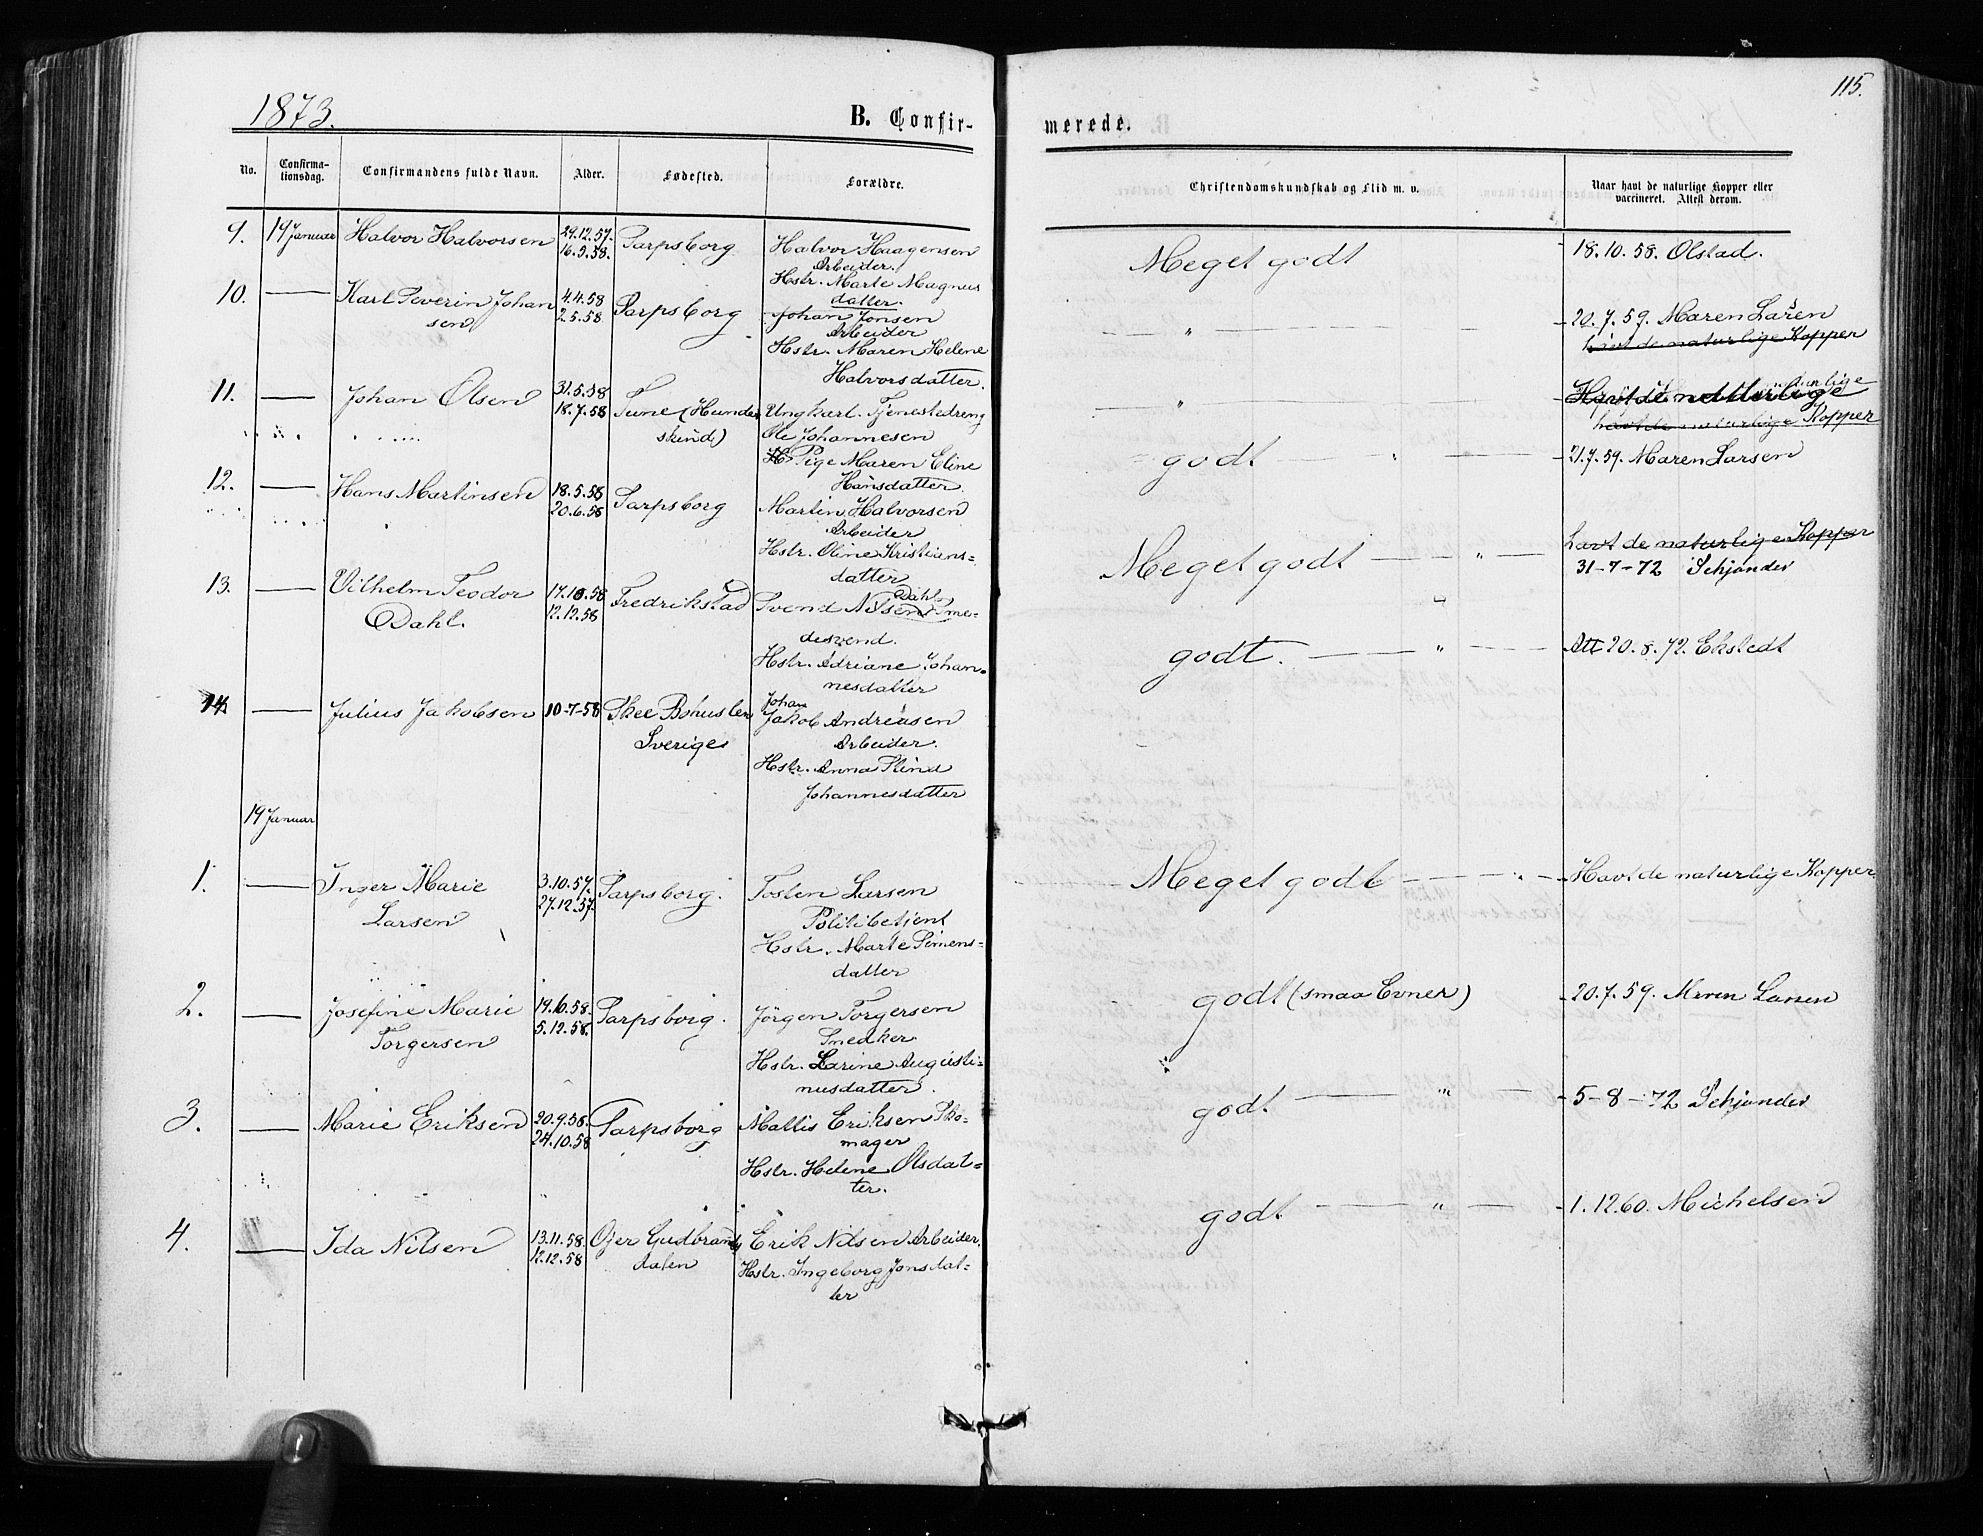 115.
1873.
B. Confir-
merede.
No.
Confirma-
tionsdag.
Confirmandens fulde Navn.
Alder.
Fødested.
Forældre.
Christendomskundskab og Flid m. v.
Naar havt de naturlige Kopper eller
vaccineret. Attest derom.
9. 19 Januar Halvor Halvorsen Sarpsborg Halvor Haagensen
16.5.58.
Arbeider.
Hstr. Marte Magnus
datter.
Meget godt
18.10.58. Olstad.
10. Karl Severin Johan
sen
4.4.58
2.5.58
Sarpsborg
Johan Jonsen
Arbeider
Hstr. Maren Helene
Halvorsdatter.
"
20.7.59. Maren Larsen
havt de naturlige Kopper
11. Johan Olsen
31.5.58
18.7.58
Tune (Hunde
skind)
Ungkarl. Tjenestedreng
Ole Johannesen
Pige Maren Eline
Hansdatter.
"
Havt de naturlige
havt de naturlige Kopper
godt
21.7.59. Maren Larsen
12. Hans Martinsen
18.5.58
20.6.58
Sarpsborg
Martin Halvorsen
Arbeider
Hstr. Oline Kristians-
datter
Meget godt "
havt de naturlige Kopper
31-7-72 Schjander
13. Vilhelm Teodor
Dahl.
17.10.58
12.12.58
Fredrikstad
Dahl
Svend Nilsen Sme-
desvend.
Hstr. Adriane Johan-
nesdatter
"
godt. "
Att 20.8.72. Ekstedt
14. Julius Jakobsen 10-7-58 Skee Bohuslen
Sverige
Johan
Jakob Andreasen
Arbeider.
Hstr. Anna Stina
Johannesdatter
19 Januar
1. Inger Marie
Larsen
3.10.57.
27.12.57.
Sarpsborg.
Tosten Larsen
Politibetjent
Hstr. Marte Simens-
datter
Meget godt "
Havt de naturlige Kopper.
2. Josefine Marie
Torgersen
5.12.58.
Sarpsborg.
Jörgen Torgersen
Snedker
Hstr. Larine Augusti-
nusdatter.
godt (smaa Evner)
20.7.59. Maren Larsen
3. Marie Eriksen
20.9.58.
24.10.58
Sarpsborg
Mattis Eriksen Sko-
mager
Hstr. Helene Olsdat-
ter.
godt "
5-8-72 Schjander
4. Ida Nilsen
13.11.58.
12.12.58
Öjer Gudbrands
dalen
Erik Nilsen Arbeider.
Hstr. Ingeborg Jonsdat-
ter
godt "
1.12.60. Michelsen